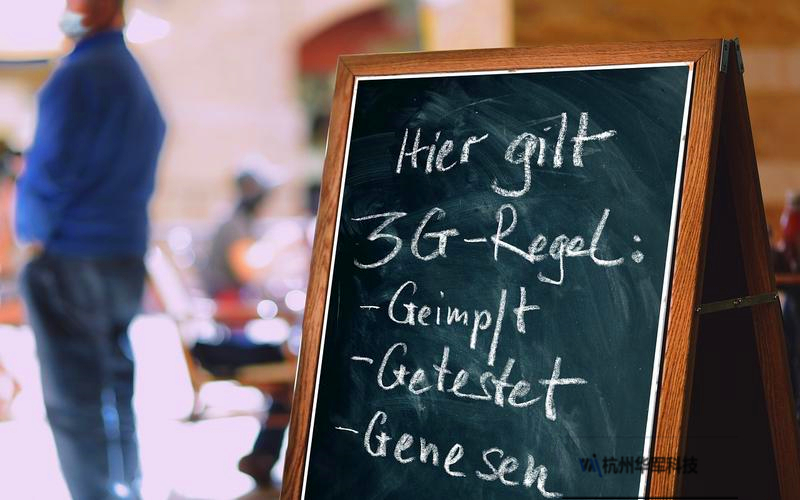 Hier gilt
3G-Regel:
-Geimpft
-Getestet
-Genesen
杭州华军科技